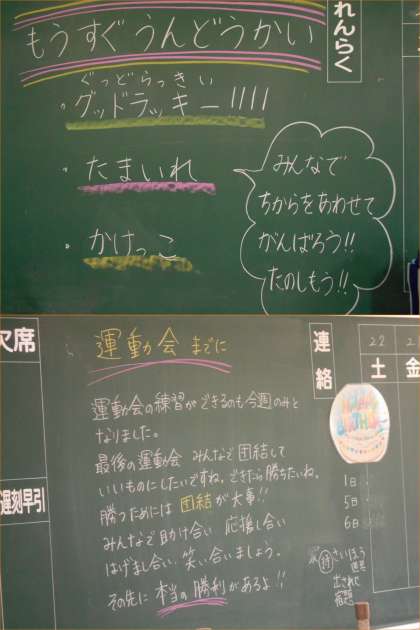 もうすぐうんどうかい
れんらく
ぐっどらっきい
。グッドラッキー!!!!
。たまいれ
。かけっこ
みんなで
ちからをあわせて
がんばろう!!
たのしもう!!
欠席
遅刻早引
運動会までに
運動会の練習ができるのも今週のみと
なりました。
最後の運動会 みんなで団結して
いいものにしたいですね。できたら勝ちたいね。
勝つためには団結が大事!!
みんなで助け合い 応援し合い
はげまし合い、笑い合いましょう。
その先に本当の勝利があるよ!!
連絡
土
金
HAPPY
BIRTHDAY
1日
5日
6日
さいほう
道具
出された
宿題